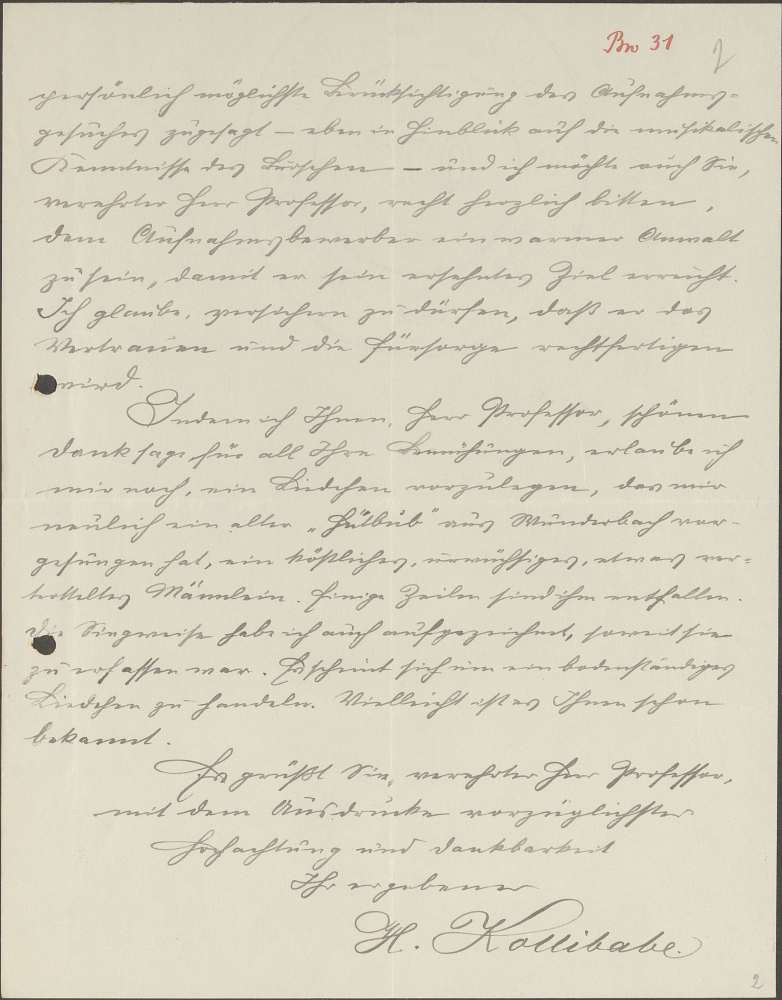 Bw 31 2
persönlich möglichste Berücksichtigung des Aufnahms-
gesuches zugesagt – eben in Hinblick auf die musikalischen
Kenntnisse des Burschen – und ich möchte auch Sie,
verehrter Herr Professor, recht herzlich bitten,
dem Aufnahmsbewerber ein warmer Anwalt
zu sein, damit er sein ersehntes Ziel erreicht.
Ich glaube, versichern zu dürfen, daß er das
Vertrauen und die Fürsorge rechtfertigen
wird.
Indem ich Ihnen, Herr Professor, schönen
Dank sage für all Ihre Bemühungen, erlaube ich
mir noch, ein Liedchen vorzulegen, das mir
neulich ein alter „Hütbub" aus Wunderbach vor-
gesungen hat, ein köstliches, urwüchsiges, etwas ver-
trotteltes Männlein. Einige Zeilen sind ihm entfallen.
Die Singweise habe ich auch aufgezeichnet, soweit sie
zu erfassen war. Es scheint sich um ein bodenständiges
Liedchen zu handeln. Vielleicht ist es Ihnen schon
bekannt.
Es grüßt Sie, verehrter Herr Professor,
mit dem Ausdrucke vorzüglichster
Hochachtung und Dankbarkeit
Ihr ergebener
H. Kollibabe.
2